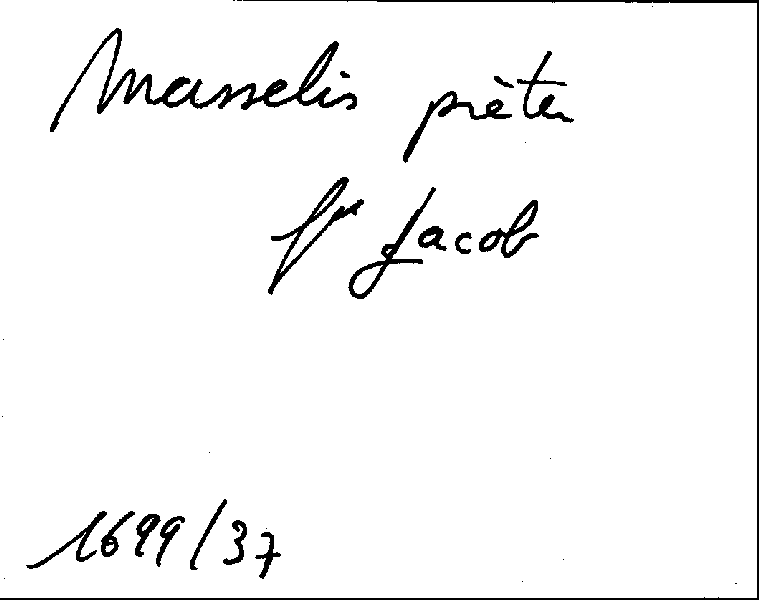 Masselis pieter
fs Jacob
1699/37